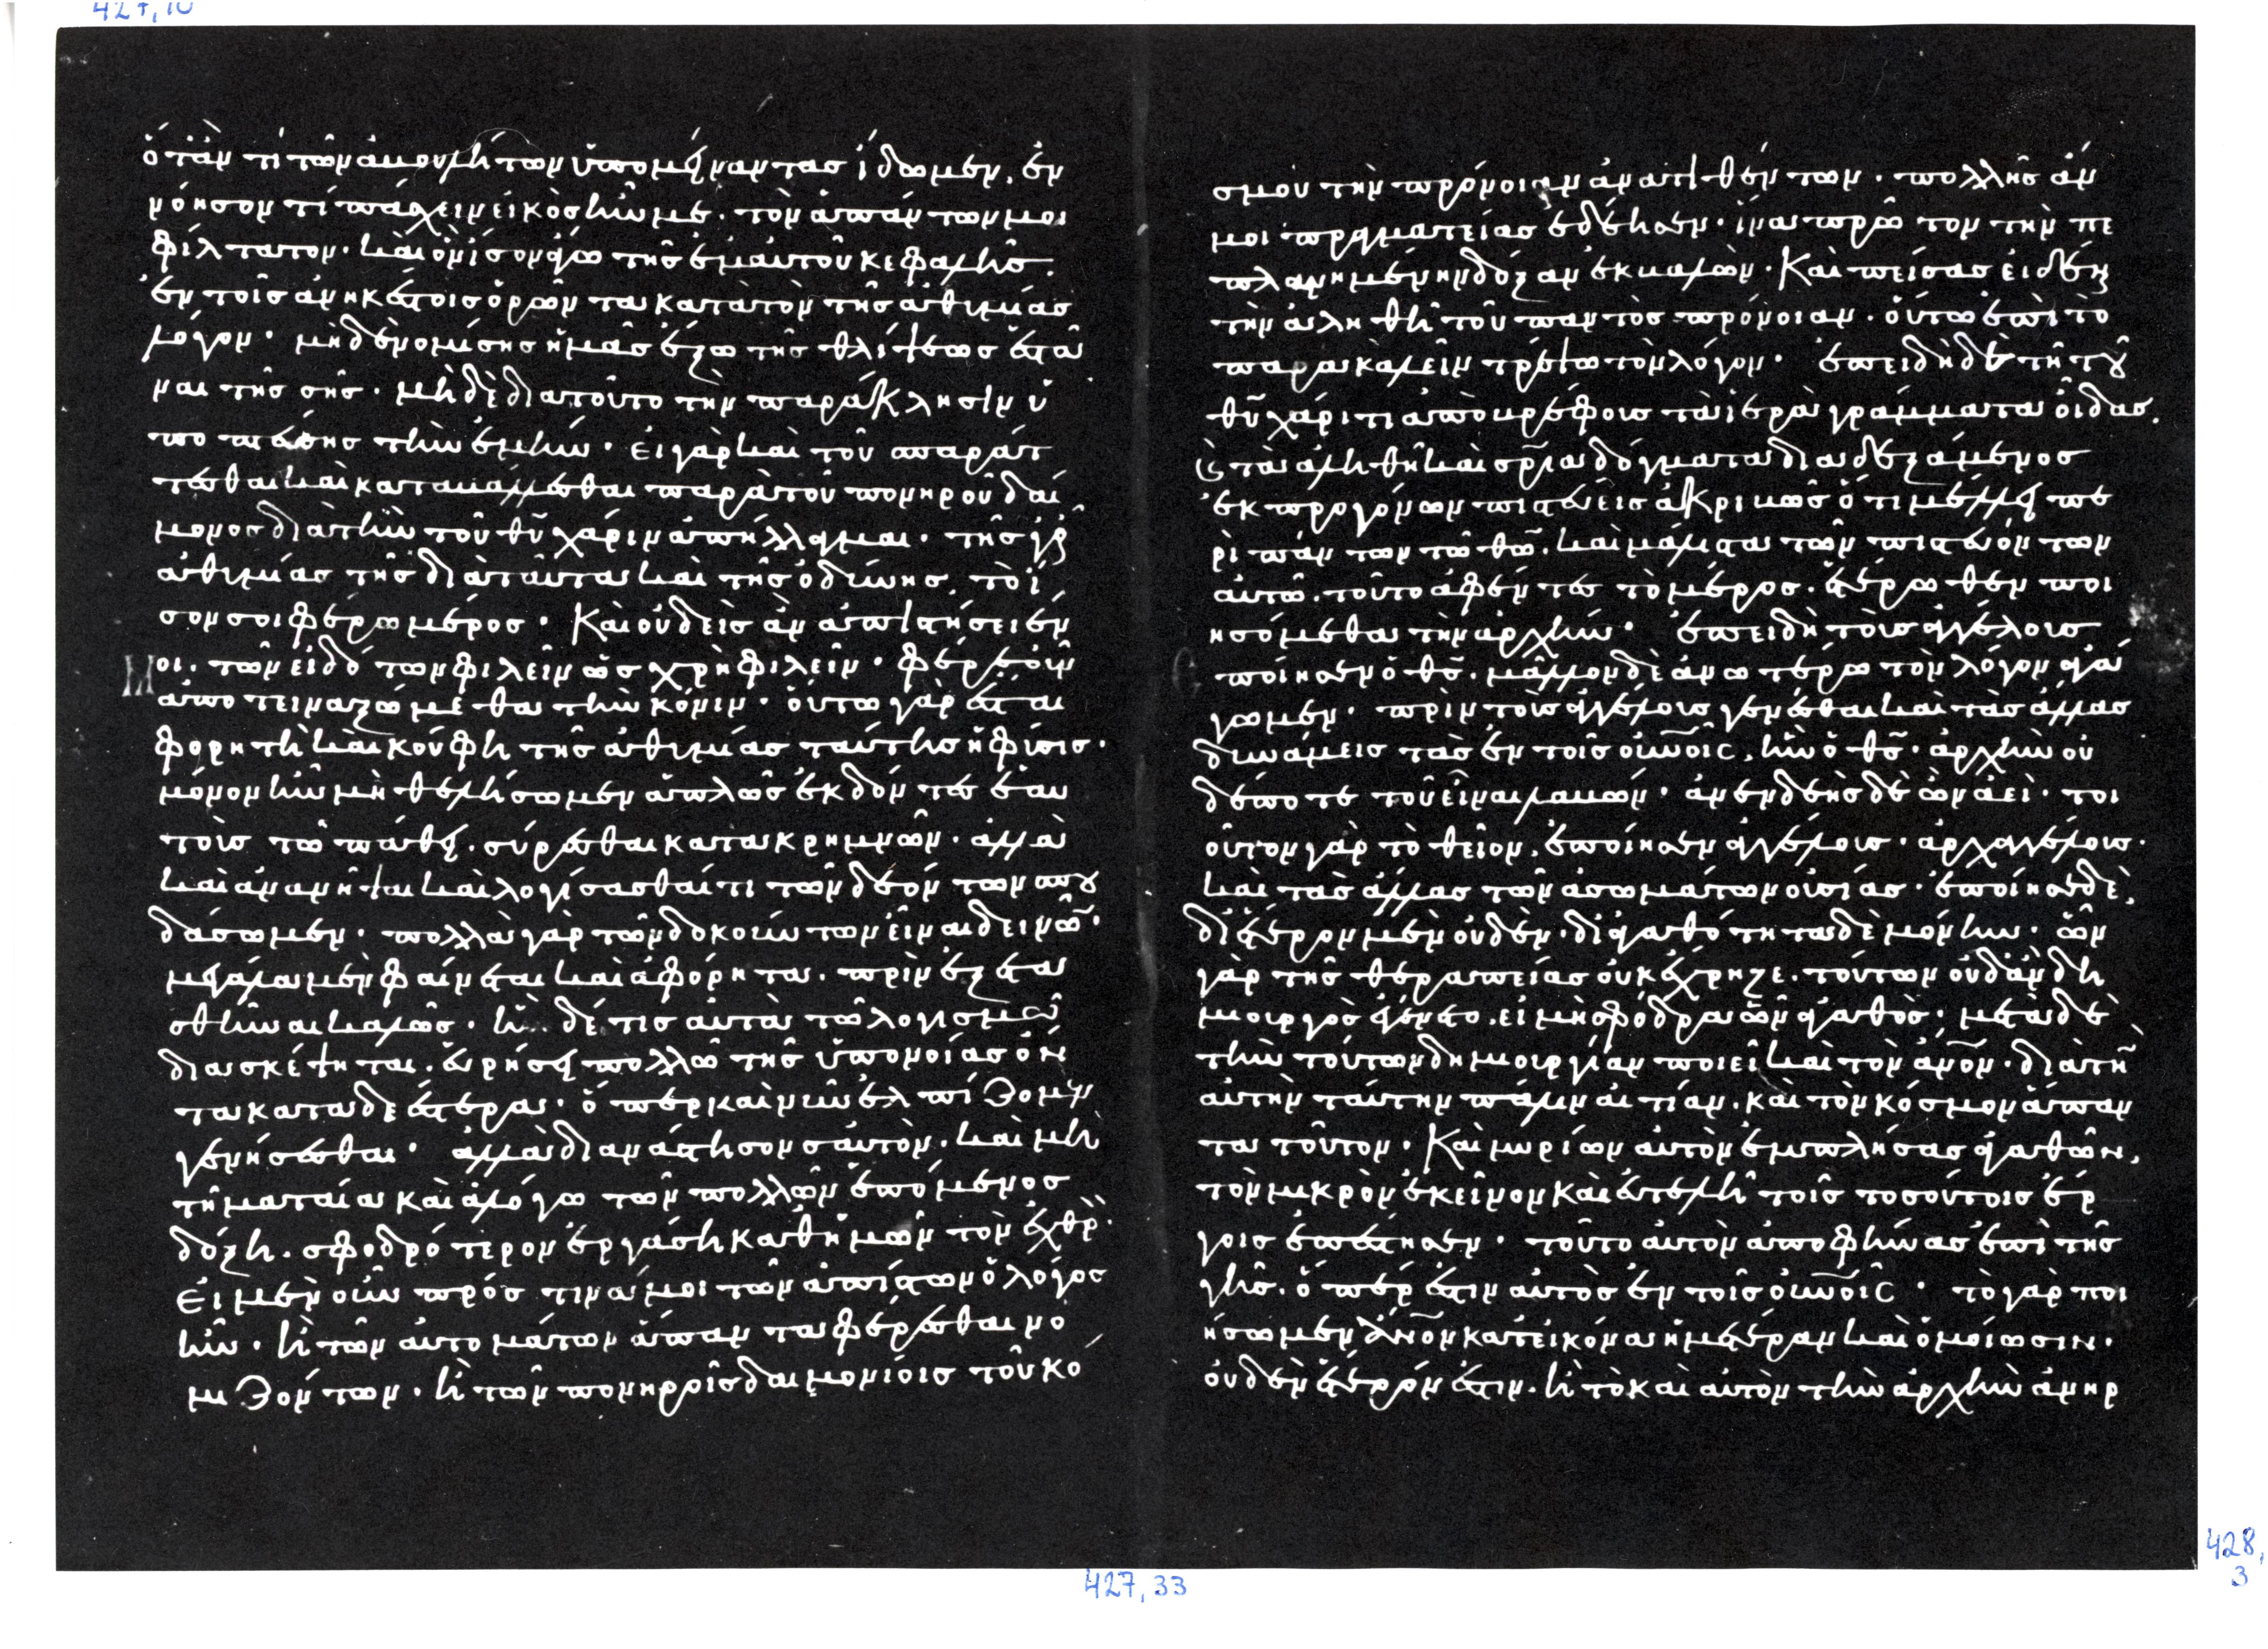 ὅτἂν τὶ τῶν ἀβουλήτων ὑπομείναντας ἴδωμεν. ἐν
νόησον τί πάσχειν εἰκὸς ἦν με. τὸν ἁπάντων μοι
φίλτατον. καὶ ὃν ἴσον ἄγω τῆς ἐμαυτοῦ κεφαλῆς.
ἐν τοῖς ἀνηκέστοις ὁρῶντα κατὰ τὸν τῆς ἀθυμίας
λόγον. μηδὲ νομίσης ἡμᾶς ἔξω τῆς θλίψεως ἑστά
ναι τῆς σῆς. μὴ δὲ διατοῦτο τὴν παράκλησιν ὑ
ποπτεύσης τὴν ἐμήν. εἰ γὰρ καὶ τοῦ σπαράτ
τεσθαι καὶ καταβάλλεσθαι παρὰ τοῦ πονηροῦ δαί
μονος διὰ τὴν τοῦ θῦ χάριν ἀπήλλαγμαι. τῆς γε
ἀθυμίας τῆς διὰ ταῦτα καὶ τῆς ὀδύνης τὸ ἴ
σον σοι φέρω μέρος. Καὶ οὐδεὶς ἂν ἀπιστήσειέν
μοι. τῶν εἰδότων φιλεῖν ὡς χρὴ φιλεῖν. φέρε οὖν
ἀποτειναξώμεθα τὴν κόνιν. οὕτω γὰρ ἔσται
φορητὴ καὶ κούφη τῆς ἀθυμίας ταύτης ἡ φύσις.
μόνον ἢν μὴ θελήσωμεν ἁπλῶς ἐκδόντες ἑαυ
τοὺς τῶ πάθει. σύρεσθαι κατακρημνῶν. ἀλλὰ
καὶ ἀνανῆψαι καὶ λογίσασθαί τι τῶν δεόντων σπου
δάσωμεν. πολλὰ γὰρ τῶν δοκούντων εἶναι δεινῶ.
μεγάλα μὲν φαίνεται καὶ ἀφόρητα. πρὶν ἐξετα
σθῆναι καλῶς. ἢν δέ τις αὐτὰ τῶ λογισμῶ
διασκέψηται. εὑρήσει πολλῶ τῆς ὑπονοίας ὄν
τα καταδεέστερα. ὅπερ καὶ νῦν ἐλπίζομεν
γενήσεσθαι. ἀλλὰ διανάστησον σαυτὸν. καὶ μὴ
τῆ ματαία καὶ ἀλόγω τῶν πολλῶν ἑπόμενος
δόξη. σφοδρότερον ἐργάση καθ ἡμῶν τὸν ἐχθρ.
Εἰ μὲν οὖν πρός τινά μοι τῶν ἀπίστων ὁ λόγος
ἦν. ἢ τῶν αὐτομάτων ἅπαντα φέρεσθαι νο
μιζόντων. ἢ τῶν πονηροῖς δαιμονίοις τοῦ κό
σμου τὴν πρόνοιαν ἀνατιθέντων. πολλῆς ἄν
μοι πραγματείας ἐδέησεν. ἵνα πρῶτον τὴν πε
πλανημένην δόξαν ἐκκαλῶν. Καὶ πείσας εἰδέναι
τὴν ἀληθῆ τοῦ παντὸς πρόνοιαν. οὕτω ἐπὶ τὸ
παρακαλεῖν τρέψω τὸν λόγον. ἐπειδὴ δὲ τῆ τοῦ
θῦ χάριτι ἀπὸ βρέφους τὰ ἱερὰ γράμματα οἶδας.
καὶ τὰ ἀληθῆ καὶ σρῖα δόγματα διαδεξάμενος
ἐκ προγόνων πιστεύεις ἀκριβῶς ὅτι μέλλει πε
ρὶ πάντων τῶ θῶ. καὶ μάλιστα τῶν πιστευόντων
αὐτῶ. τοῦτο ἀφέντες τὸ μέρος. ἑτέρωθεν ποι
ησόμεθα τὴν ἀρχήν. ἐπειδὴ τοὺς ἀγγέλους
ἐποίησεν ὁ θς. μᾶλλον δὲ ἀνωτέρω τὸν λόγον ἀγά
γωμεν. πρὶν τοὺς ἀγγέλους γενέσθαι καὶ τὰς ἄλλας
δυνάμεις τὰς ἐν τοῖς οὐνοῖς. ἦν ὁ θς. ἀρχὴν οὐ
δέποτε τοῦ εἶναι λαβών. ἀνενδεὴς δὲ ὢν ἀεὶ. τοι
οῦτον γὰρ τὸ θεῖον. ἐποίησεν ἀγγέλους. ἀρχαγγέλους.
καὶ τὰς ἄλλας τῶν ἀσωμάτων οὐσίας. ἐποίησε δὲ,
δι ἕτερον μὲν οὐδὲν. δι ἀγαθότητα δὲ μόνην. ὧν
γὰρ τῆς θεραπείας οὐκ ἔχρηζε. τούτων οὐδ ἂν δη
μιουργὸς ἐγένετο. εἰ μὴ σφόδρα ὢν ἀγαθὸς. μετὰ δὲ
τὴν τούτων δημιουργίαν ποιεῖ καὶ τὸν ἄνον. διὰ τὴν
αὐτὴν ταύτην πάλιν αἰτίαν. καὶ τὸν κόσμον ἅπαν
τα τοῦτον. Καὶ μυρίων αὐτὸν ἐμπλήσας ἀγαθῶν,
τὸν μικρὸν ἐκεῖνον καὶ εὐτελῆ τοῖς τοσούτοις ἔρ
γοις ἐπέστησεν. τοῦτο αὐτὸν ἀποφήνας ἐπὶ τῆς
γῆς. ὅπερ ἐστιν αὐτὸς ἐν τοῖς οὐνοῖς. τὸ γὰρ ποι
ήσωμεν ἄνον κατ εἰκόνα ἡμετέραν καὶ ὁμοίωσιν.
οὐδὲν ἕτερόν ἐστιν. ἢ τὸ καὶ αὐτὸν τὴν ἀρχὴν ἀνηρ
427,10
427,33
428,
3